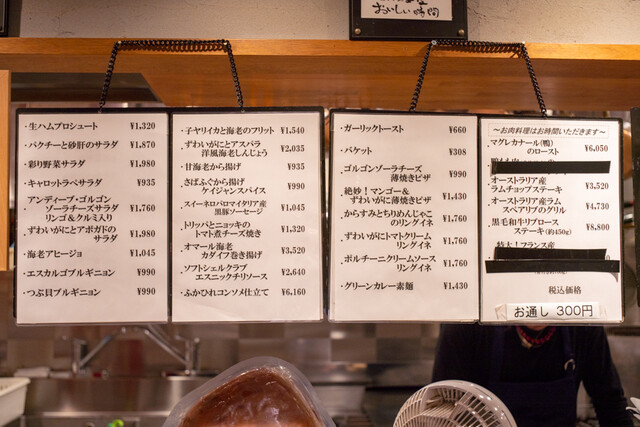 おいしい時間
・生ハムプロシュート ¥1,320
・パクチーと砂肝のサラダ ¥1,870
・彩り野菜サラダ ¥1,980
・キャロットラペサラダ ¥935
・アンディーブ・ゴルゴン
ゾーラチーズサラダ ¥1,760
リンゴ&クルミ入り
・ずわいがにとアボガドの
サラダ ¥1,980
・海老アヒージョ ¥1,045
・エスカルゴブルギニョン ¥990
・つぶ貝ブルギニョン ¥990
・子ヤリイカと海老のフリット ¥1,540
・ずわいがにとアスパラ
洋風海老しんじょう ¥2,035
・甘海老から揚げ ¥935
・さばふぐから揚げ
ケイジャンスパイス ¥990
・スイーネロパロマイタリア産
黒豚ソーセージ ¥1,045
・トリッパとニョッキの
トマト煮チーズ焼き ¥1,320
・オマール海老
カダイフ巻き揚げ ¥3,520
・ソフトシェルクラブ
エスニックチリソース ¥2,640
・ふかひれコンソメ仕立て ¥6,160
・ガーリックトースト ¥660
・バケット ¥308
・ゴルゴンゾーラチーズ
薄焼きピザ ¥990
・絶妙!マンゴー&
ずわいがに薄焼きピザ ¥1,430
・からすみとちりめんじゃこ
のリングイネ ¥1,760
・ずわいがにトマトクリーム
リングイネ ¥1,760
・ポルチーニクリームソース
リングイネ ¥1,760
・グリーンカレー素麺 ¥1,430
~お肉料理はお時間いただきます~
・マグレカナール(鴨) ¥6,050
のロースト
・オーストラリア産
ラムチョップステーキ ¥3,520
・オーストラリア産ラム
スペアリブのグリル ¥4,730
・黒毛和牛リブロース
ステーキ(約450g) ¥8,800
・特大!フランス産
税込価格
お通し 300円